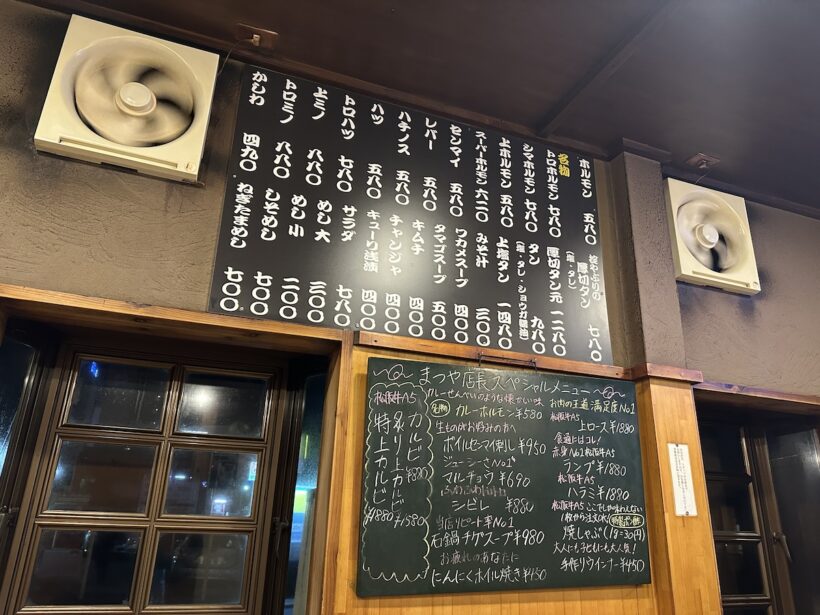 ホルモン 五八〇
名物 トロホルモン 七八〇
シマホルモン 七八〇
上ホルモン 五八〇
スーパーホルモン 六二〇
センマイ 五八〇
レバー 五八〇
ハチノス 五八〇
ハツ 五八〇
トロハツ 七八〇
上ミノ 八八〇
トロミノ 八八〇
かしわ 四九〇
厚切タン 七八〇
(塩・タレ)
厚切タン元 一二八〇
タン 九八〇
(塩・タレ・ショウガ醤油)
上塩タン 一四八〇
みそ汁 三〇〇
ワカメスープ 四〇〇
タマゴスープ 五〇〇
キムチ 四〇〇
チャンジャ 四〇〇
キューリ浅漬 四〇〇
サラダ 七八〇
めし大 三〇〇
めし小 二〇〇
しそめし 七〇〇
ねぎたまめし 七〇〇
まつや店長スペシャルメニュー
お肉の王道 満足度No1
松阪牛A5
上ロース¥1880
食通にはコレ!
赤身No1松阪牛A5
ランプ¥1880
松阪牛A5
ハラミ¥1890
松阪牛A5 ここでしか味わえない
1枚から注文OK
焼しゃぶ
大人にも子どもにも大人気!
手作りウインナー¥450
カレーせんべいのような懐かしい味
名物 カレーホルモン¥580
生ものがお好みの方へ
ボイルセンマイ刺し¥950
ジューシーさNo1
マルチョウ¥690
シビレ ¥880
当店リピート率No1
石鍋チゲスープ¥980
お疲れのあなたに
にんにくホイル焼き¥450
松阪牛A5
カルビ ¥880
上カルビ ¥1580
特上カルビ ¥1880